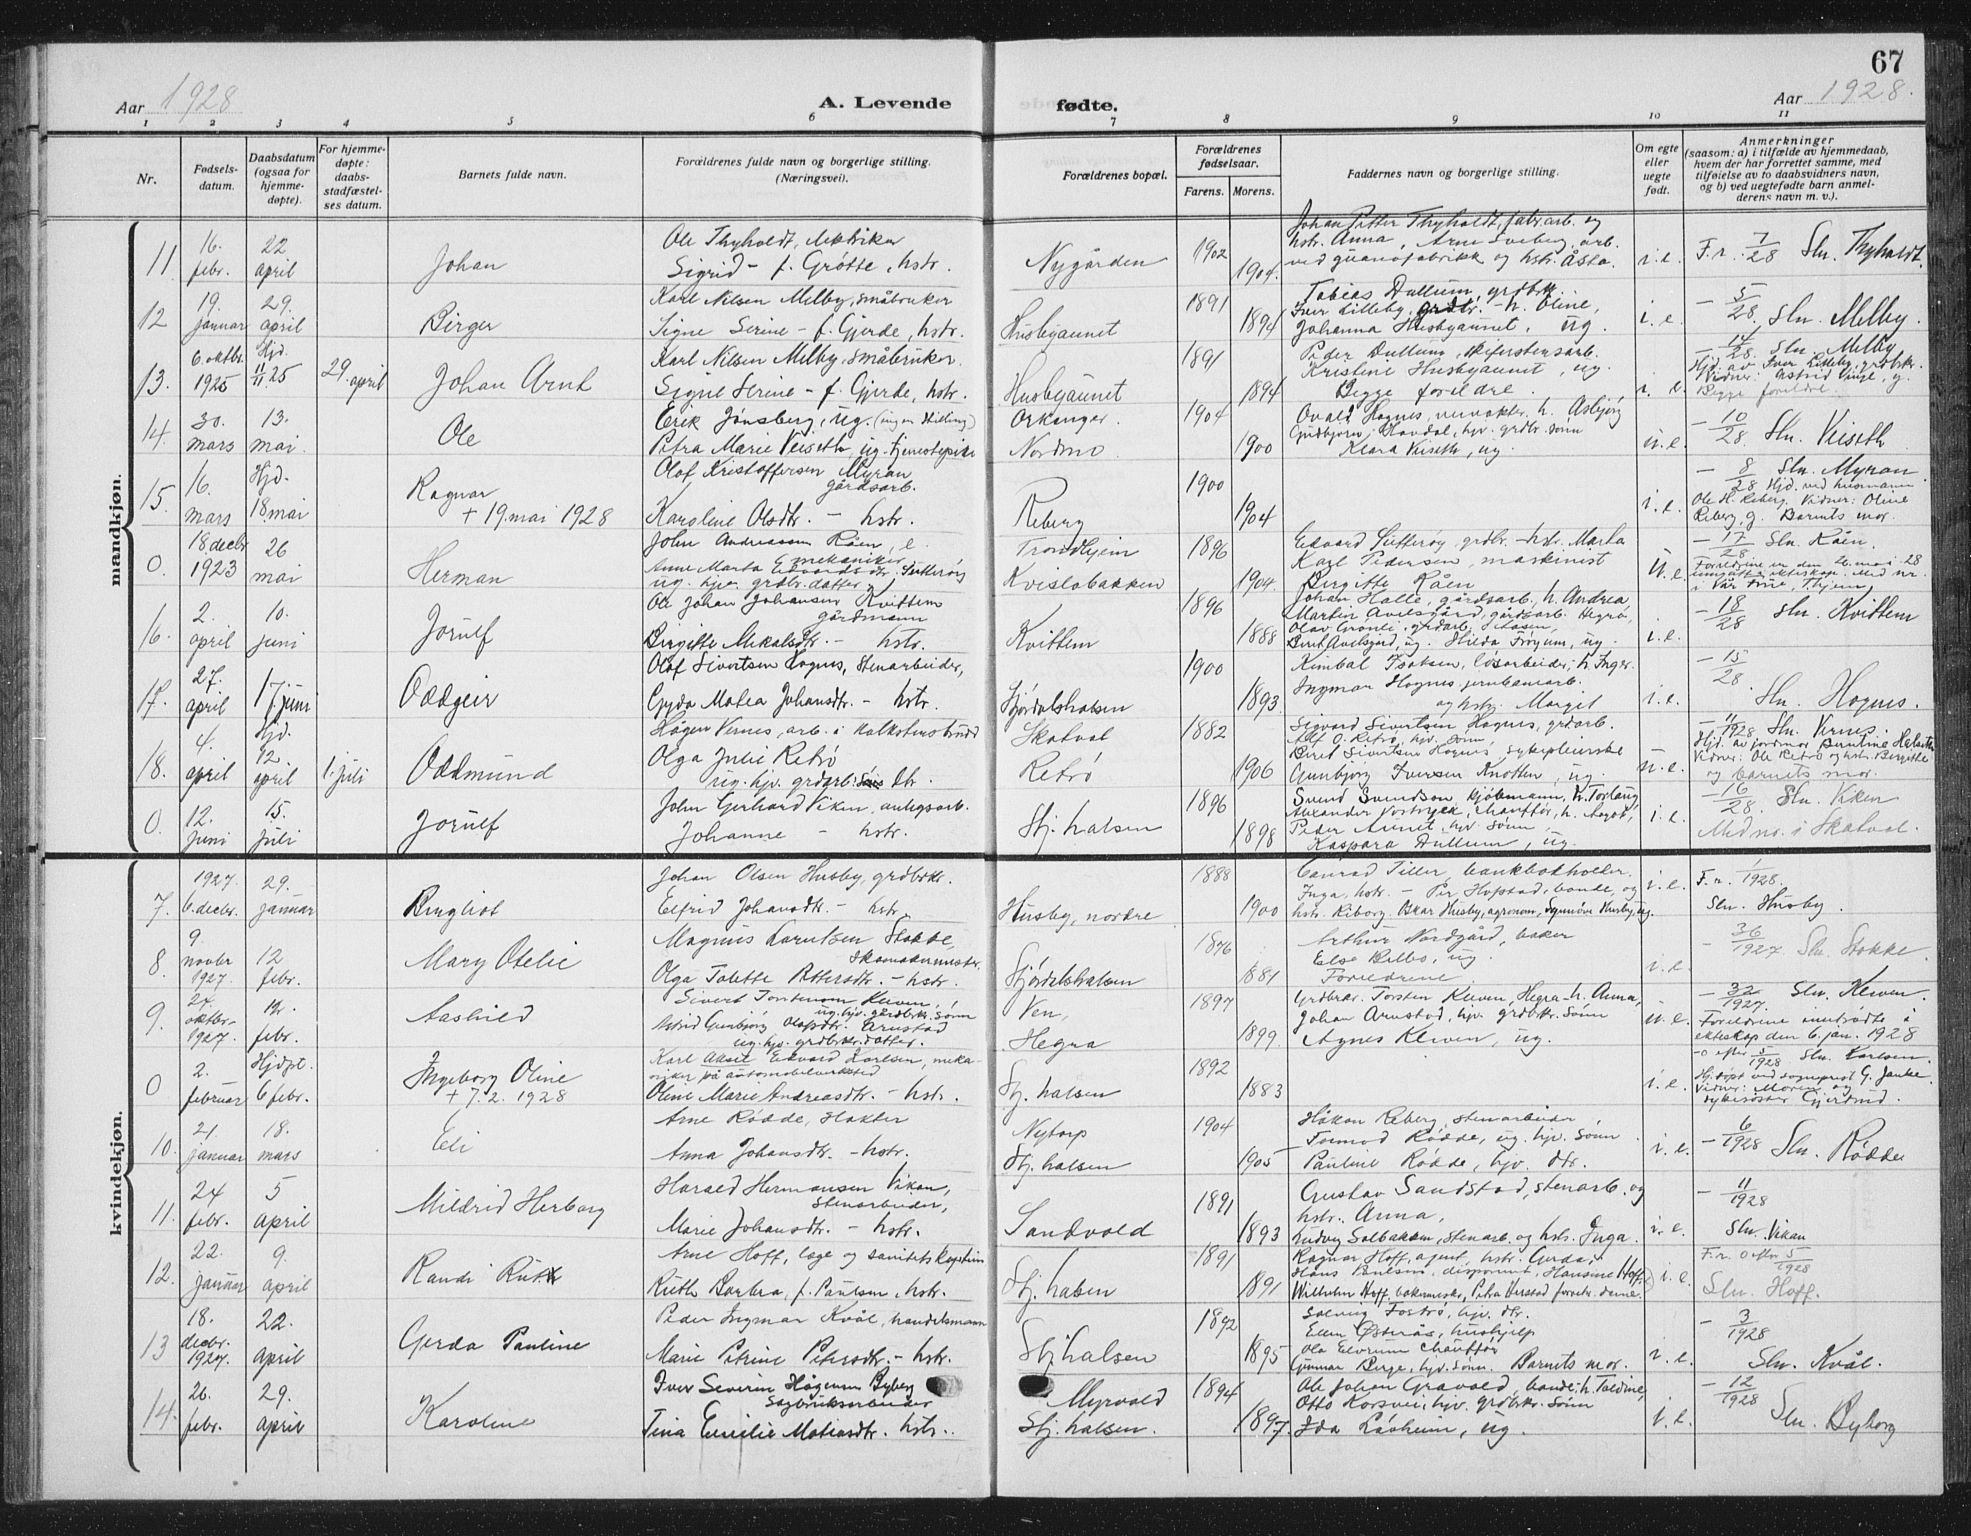 67
Aar 1928
A. Levende
fødte.
Aar 1928.
1 2 3 4 5 6 7 8 9 10 11
Nr.
Fødsels-
datum.
Daabsdatum
(ogsaa for
hjemme-
døpte).
For hjemme-
døpte:
daabs-
stadfæstel-
ses datum.
Barnets fulde navn.
Forældrenes fulde navn og borgerlige stilling.
(Næringsvei).
Forældrenes bopæl.
Forældrenes
fødselsaar.
Farens. Morens.
Faddernes navn og borgerlige stilling.
Om egte
eller
uegte
født.
Anmerkninger
(saasom: a) i tilfælde av hjemmedaab,
hvem der har forrettet samme, med
tilføielse av to daabsvidners navn,
og b) ved uegtefødte barn anmel-
derens navn m. v.).
mandkjøn.
11 16. febr. 22 april Johan
Ole Thyholdt,
Sigrid – f. Grøtte, hstr.
Nygården 1902 1904.
Johan Petter Thyholdt, fabr.arb. og
hstr. Anna, Arne Sveberg, arb.
ved guanofabrikk og hstr. Åsta.
i.e. F.r. 7/28 Sln. Thyholdt.
12 19. januar 29. april Birger
Karl Nilsen Melby, småbruker
Signe Serine – f. Gjerde, hstr.
Husbyaunet 1891 1894
Tobias Dullum, grdbr.
Iver Lilleby, grdbr. – h. Oline,
Johanna Husbyaunet, ug.
i.e. – 5/28. Sln. Melby.
13. 6 oktbr. 1925 Hjd. 11/11 25 29. april Johan Arnt
Karl Nilsen Melby, småbruker.
Signe Serine – f. Gjerde, hstr.
Husbyaunet 1891 1894
Peder Dullum,
Kristine Husbyaunet, ug.
Begge foreldre.
i. e. – 14/28. Sln. Melby
Hjd. av Iver Lilleby, grdbrkr.
Vidner: Astrid Vinge, g.
Begge foreldre.
14. 30. mars 13. mai Ole
Erik Jønsberg, ug. (ingen stilling)
Petra Marie Veiseth, ug. tjenestepike
Orkanger. Nordmo. 1904 1900
Ovald Hognes, h. Asbjørg
Gudbjørg Havdal, hjv. grdbr. sønn
Klara Veiseth, ug.
u.e. – 10/28 Sln. Veiseth.
15. 16. mars Hjd. 18. mai Ragnar
+ 19. mai 1928
Olaf Kristoffersen Myran
gårdsarb.
Karoline Olsdtr. – hstr.
Reberg 1900 1904
i.e. – 8/28 Sln. Myran.
Hjd. ved husmann
Ole H. Reberg. Vidner: Oline
Reberg, g. Barnets mor.
0. 18 decbr 1923 26 mai Herman
John Andreassen Råen, e.
mekaniker
Anne Marta Edvardsdtr. Sutterøy
ug. hjv. grdbr. datter
Trondhjem Kvislabakken 1896 1904.
Edvard Sutterøy, grdbr. – hstr. Marta
Karl Pedersen, maskinist
Birgitte Råen
u. e. – 17/28 Sln. Råen.
Foreldrene er den 26. mai 28
inngått i ekteskap. Med nr.
i Vår Frue, Thjem
16. 2. april 10. juni Jorulf
Ole Johan Johansen Kvittem
gårdmann
Birgitte Mikalsdtr. – hstr.
Kvittem 1896 1888
Johan Halle, gårdsarb, h. Andrea
Martin Avelsgård, gårdsarb. Hegra,
Olav Grønli, grdarb. Åsen,
Berit Avelsgård, ug. Hilda Frøyum, ug.
i.e. – 18/28 Sln. Kvittem
17. 27. april 17. juni Oddgeir
Olaf Sivertsen Hognes, Stenarbeider,
Gyda Matea Johansdtr. – hstr.
Stjørdalshalsen 1900 1893
Kimbal Isaksen, løsarbeider, h. Inger.
Ingmar Hognes, jernbanearb.
og hstr. Margit
i.e. – 15/28 Sln. Hognes.
18. 4. april Hjd. 12 april 1. juli Oddmund
Hågen Vernes, arb. i kalkstensbrudd
Olga Julie Retrø
ug. hjv. grdarb. dtr.
Skatval Retrø 1882 1906
Sigvard Sivertsen Hognes, grdarb.
Alf O. Retrø, hjv. sønn,
Berit Sivertsen Hognes, sykepleierske
Gunbjørg Iversen Knotten, ug.
u.e. – 11/1928 Sln. Vernes.
Hjd. av jordmor Bentine Halseth
Vidner: Ole Retrø og hstr. Birgitte
og barnets mor.
0. 12. juni 15. juli Jorulf
John Gerhard Viken, anlegsarb.
Johanne – hstr.
Stj. halsen 1896 1898
Svend Svendson, kjøbmann, h. Torlaug,
Alexander Vostryck, chauffør, h. Aagot,
Peder Aunet, hjv. sønn,
Kaspara Dullum, ug.
i.e. – 16/28 Sln. Viken
Med nr. i Skatval.
kvindekjøn.
7. 1927. 6. decbr. 29. januar Bergliot
Johan Olsen Husby, grdbrkr.
Elfrid Johansdtr. – hstr.
Husby, nordre 1888 1900
Conrad Tiller, bankbokholder.
Inga, hstr. – Per Hofstad, bonde, og
hstr. Riborg. Brar Husby, agronom, Synnøve Husby, ug.
i.e. F.r. 1/1928. Sln. Husby.
8. 9 novbr 1927. 12 febr. Mary Otelie
Magnus Larntsen Stokke,
skomakermestr.
Olga Tolette Pettersdtr. – hstr.
Stjørdalshalsen 1876 1881
Arthur Nordgård, baker
Else Kelbo, ug.
Foreldrene
i.e. – 36/1927. Sln. Stokke.
9. 24. oktbr. 1927. 12. febr. Aashild
Sivert Torstensen Kleven,
ug. hjv. grdbrkr. sønn
Astrid Gunbjørg Olafsdtr. Arnstad
ug. hjv. grdbrkr. datter.
Ven, Hegra 1897 1899.
Grdbrkr. Torsten Kleven, Hegra – h. Anna,
Johan Arnstad, hjv. grdbrkr. sønn
Agnes Kleven, ug.
u.e. – 32/1927. Sln. Kleven.
Foreldrene inntrådte i
ekteskap den 6. jan. 1928
0 2. februar Hjdpt. 6 febr. Ingeborg Oline
+ 7. 2. 1928
Karl Aksel Edvard Karlsen, meka-
niker på automobilverksted
Oline Marie Andreasdtr. – hstr.
Stj. halsen 1892 1883
i.e. – 0 efter 5/1928 Sln. Karlsen.
Hj. døpt ved sogneprest G. Janke.
Vidner: Moren og
sykesøster Gjertrud.
10. 21. januar 18. mars Eli
Arne Rødde, Slakter
Anna Johansdtr. – hstr.
Nytorp Stj. halsen 1904 1905
Håkon Reberg, stenarbeider,
Tormod Rødde, ug. hjv. sønn
Pauline Rødde, hjv. dtr.
i. e. – 6/1928 Sln. Rødde
11. 24 febr. 5 april Mildrid Herborg
Harald Hermansen Vikan,
Stenarbeider,
Marie Johansdtr. – hstr.
Sandvold 1891 1893
Gustav Sandstad, stenarb. og
hstr. Anna,
Ludvig Solbakken, stenarb. og hstr. Inga.
i.e. – 11/1928 Sln. Vikan
12. 22. januar 9. april Randi Ruth
Arne Hoff, læge og sanitetskaptein
Ruth Barbra, f. Paulsen, hstr.
Stj. halsen 1891 1891
Ragnar Hoff, agent, hstr. Gerda,
Hans Paulsen, disponent, Hansine Hoff,
Wilhelm Hoff, bokanmelder, Petra Verstad forretn. dame.
i. e. F.r. 0 efter 5/1928
Sln. Hoff.
13 18. decbr. 1927. 22. april Gerda Pauline
Peder Ingmar Kvål, handelsmann
Marie Petrine Petersdtr. – hstr.
Stj halsen 1892 1895
Solveig Fostrø, hjv. dtr.
Ellen Østerås, hushjelp
Ola Elvrum chauffør
Gunnar Berge, hjv. sønn. Barnets mor.
i. e. – 3/1928
Sln. Kvål.
14. 26. febr. 29. april Karoline
Iver Severin Hågensen Byberg
Sagbruksarbeider
Tina Emilie Matiasdtr. hstr.
Myrvold Stj. halsen. 1894 1897.
Ole Johan Gravold, bonde, h. Taldine,
Otto Korsvei, hjv. grdbrkr. sønn
Ida Låvheim, ug.
i. e. – 12/1928
Sln. Byborg